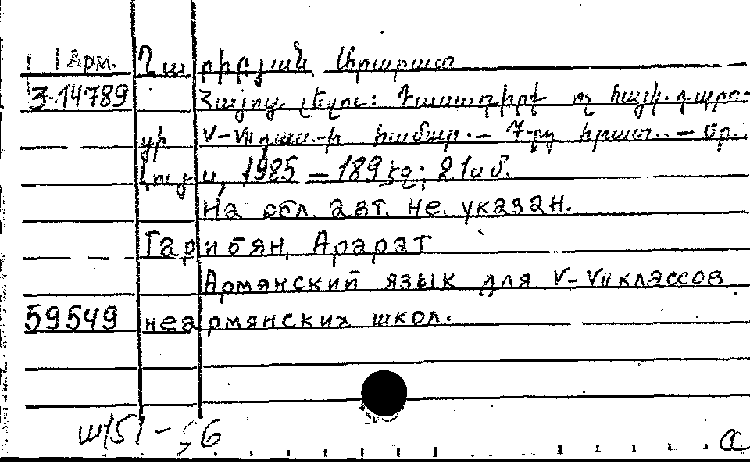 Арм. Ղարիբյան Արարատ
3-14789 Հայոց լեզու: Դասագիրք ոչ հայկ. դպրո-
ցի V-VII դաս.-ի համար. - 7-րդ հրատ. - Եր.:
Լույս, 1985 - 189 էջ; 21 սմ.
На обл. авт. не указан.
Гарибян, Арарат
Армянский язык для V-VII классов
59549 неармянских школ.